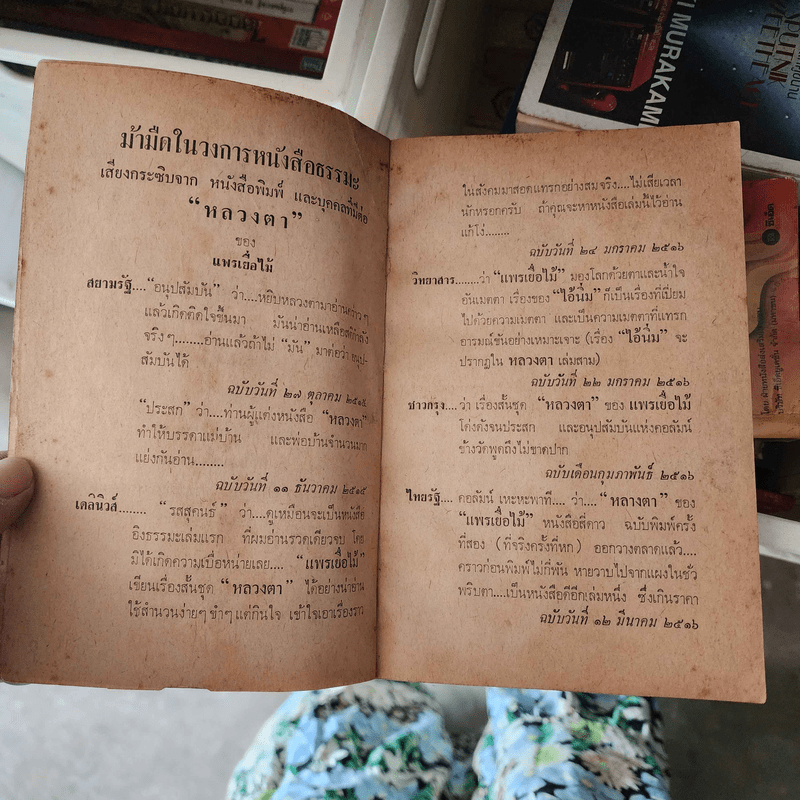 ม้ามืดในวงการหนังสือธรรมะ
เสียงกระซิบจาก หนังสือพิมพ์ และบุคคลที่มีต่อ
“หลวงตา”
ของ
แพรเยื่อไม้
สยามรัฐ....“อนุปสัมบัน” ว่า....หยิบหลวงตามาอ่านคร่าวๆ
แล้วเกิดติดใจขึ้นมา มันน่าอ่านเหลือสติกำลัง
จริงๆ........อ่านแล้วถ้าไม่ “มัน” มาต่อว่า อนุป-
สัมบันได้
ฉบับวันที่ ๒๗ ตุลาคม ๒๕๑๕
“ประสก” ว่า....ท่านผู้แต่งหนังสือ “หลวงตา”
ทำให้บรรดาแม่บ้าน และพ่อบ้านจำนวนมาก
แย่งกันอ่าน........
ฉบับวันที่ ๑๑ ธันวาคม ๒๕๑๕
เดลินิวส์........ “รสสุคนธ์” ว่า....ดูเหมือนจะเป็นหนังสือ
อิงธรรมะเล่มแรก ที่ผมอ่านรวดเดียวจบ โดย
มิได้เกิดความเบื่อหน่ายเลย.... “แพรเยื่อไม้”
เขียนเรื่องสั้นชุด “หลวงตา” ได้อย่างน่าอ่าน
ใช้สำนวนง่ายๆ ขำๆ แต่กินใจ เข้าใจเอาเรื่องราว
ในสังคมมาสอดแทรกอย่างสมจริง....ไม่เสียเวลา
นักหรอกครับ ถ้าคุณจะหาหนังสือเล่มนี้ไว้อ่าน
แก้โง่........
ฉบับวันที่ ๒๔ มกราคม ๒๕๑๖
วิทยาสาร....ว่า “แพรเยื่อไม้” มองโลกด้วยตาและน้ำใจ
อันเมตตา เรื่องของ “ไอ้นิ่ม” ก็เป็นเรื่องที่เปี่ยม
ไปด้วยความเมตตา และเป็นความเมตตาที่แทรก
อารมณ์ขันอย่างเหมาะเจาะ (เรื่อง “ไอ้นิ่ม” จะ
ปรากฏใน หลวงตา เล่มสาม)
ฉบับวันที่ ๒๒ มกราคม ๒๕๑๖
ชาวกรุง....ว่า เรื่องสั้นชุด “หลวงตา” ของ แพรเยื่อไม้
โด่งดังจนประสก และอนุปสัมบันแห่งคอลัมน์
ข้างวัดพูดถึงไม่ขาดปาก
ฉบับเดือนกุมภาพันธ์ ๒๕๑๖
ไทยรัฐ.... คอลัมน์ เหะหะพาที.... ว่า....“หลางตา” ของ
“แพรเยื่อไม้” หนังสือสี่ดาว ฉบับพิมพ์ครั้ง
ที่สอง (ที่จริงครั้งที่หก) ออกวางตลาดแล้ว....
คราวก่อนพิมพ์ไม่กี่พัน หายวาบไปจากแผงในชั่ว
พริบตา....เป็นหนังสือดีอีกเล่มหนึ่ง ซึ่งเกินราคา
ฉบับวันที่ ๑๒ มีนาคม ๒๕๑๖
I MURAKAMI